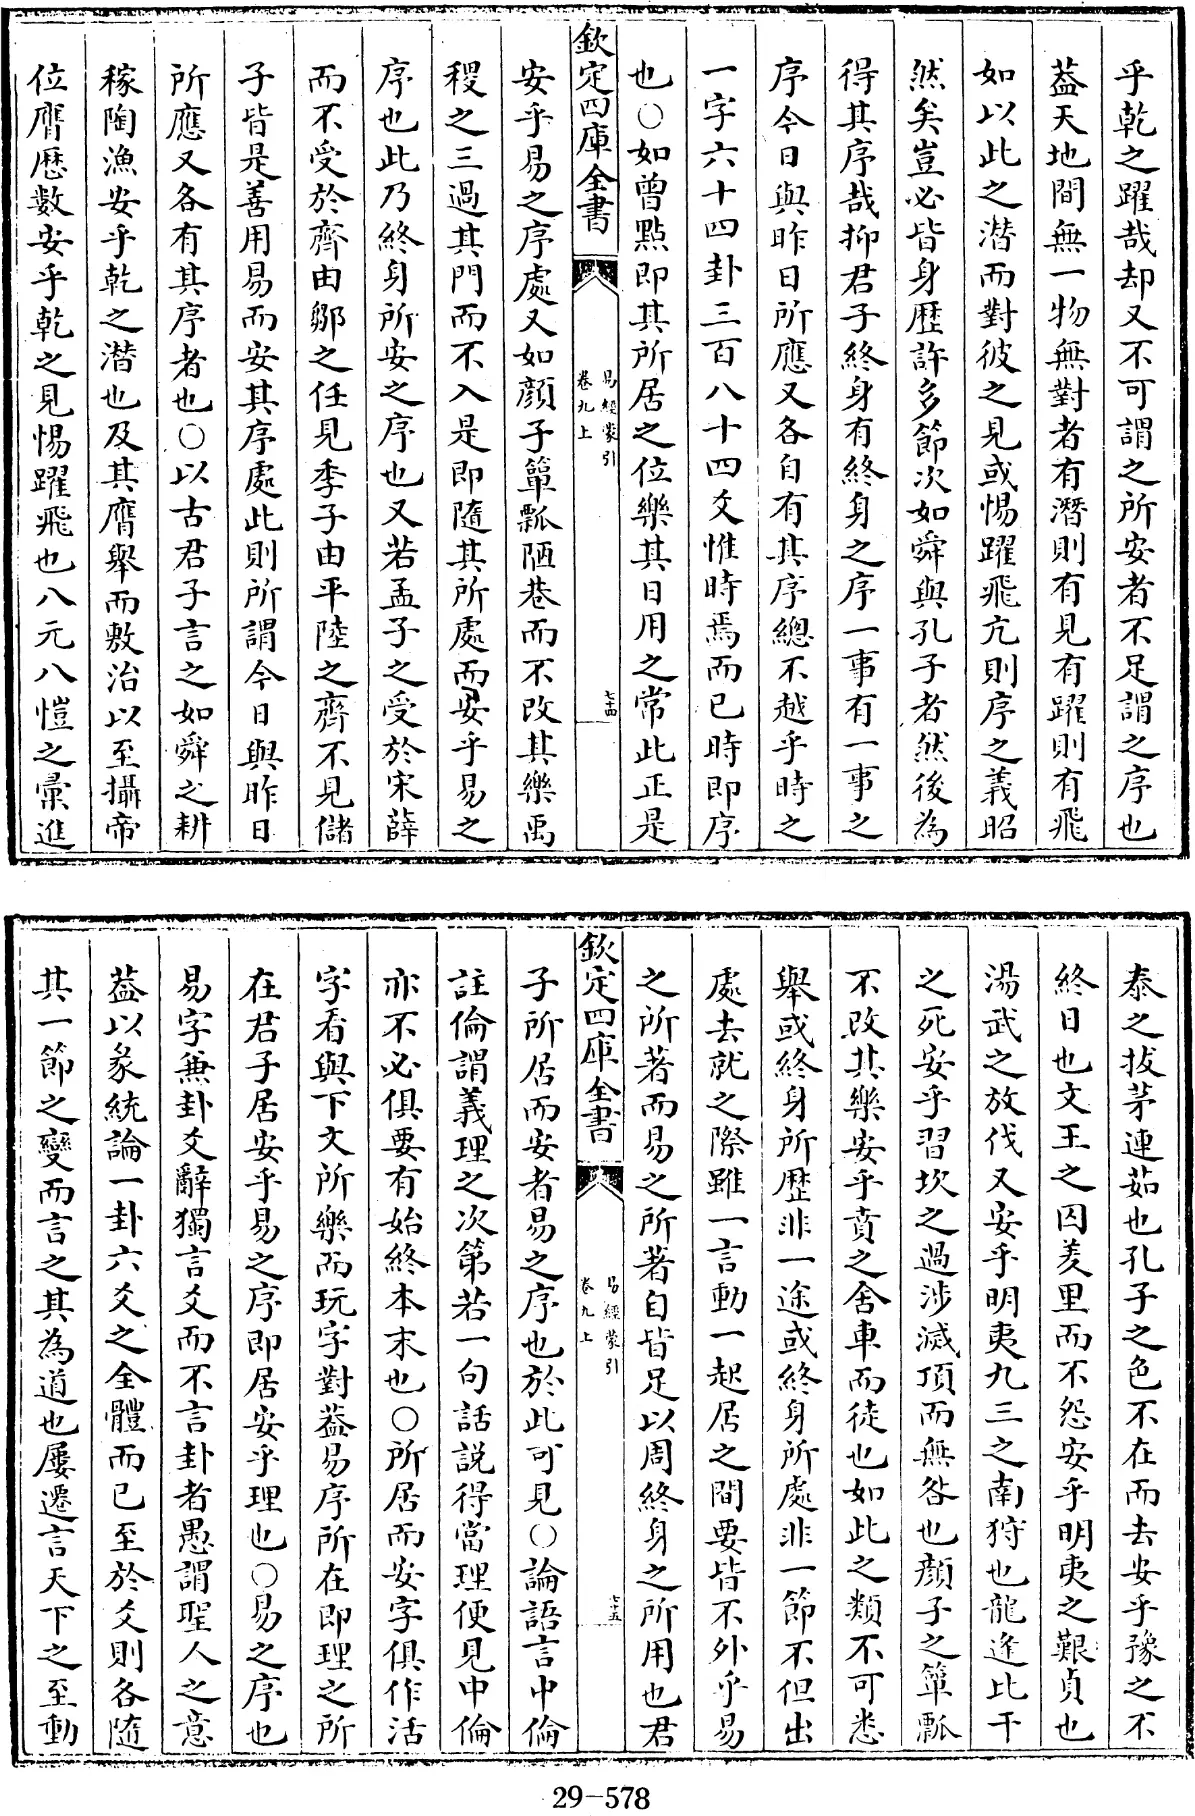 乎乾之躍哉却又不可謂之所安者不足謂之序也
葢天地間無一物無對者有潛則有見有躍則有飛
如以此之潜而對彼之見或惕躍飛亢則序之義昭
然矣豈必皆身歴許多節次如舜與孔子者然後為
得其序哉抑君子終身有終身之序一事有一事之
序今日與昨日所應又各自有其序總不越乎時之
一字六十四卦三百八十四爻惟時焉而已時即序
也○如曾㸃即其所居之位樂其日用之常此正是
欽定四庫全書
易經蒙引
卷九上
七十四
安乎易之序處又如顔子簞瓢陋巷而不改其樂禹
稷之三過其門而不入是即隨其所處而安乎易之
序也此乃終身所安之序也又若孟子之受於宋薛
而不受於齊由鄒之任見季子由平陸之齊不見儲
子皆是善用易而安其序處此則所謂今日與昨日
所應又各有其序者也○以古君子言之如舜之耕
稼陶漁安乎乾之潜也及其膺舉而敷治以至攝帝
位膺厯數安乎乾之見惕躍飛也八元八愷之彚進
泰之拔茅連茹也孔子之色不在而去安乎豫之不
終日也文王之囚羑里而不怨安乎明夷之艱貞也
湯武之放伐又安乎明夷九三之南狩也龍逄比干
之死安乎習坎之過涉滅頂而無咎也顔子之簞瓢
不改其樂安乎賁之舍車而徒也如此之類不可悉
舉或終身所歴非一途或終身所處非一節不但出
處去就之際雖一言動一起居之間要皆不外乎易
之所著而易之所著自皆足以周終身之所用也君
欽定四庫全書
易經蒙引
卷九上
七十五
子所居而安者易之序也於此可見○論語言中倫
註倫謂義理之次第若一句話說得當理便見中倫
亦不必俱要有始終本末也○所居而安字俱作活
字看與下文所樂而玩字對葢易序所在即理之所
在君子居安乎易之序即居安乎理也○易之序也
易字兼卦爻辭獨言爻而不言卦者愚謂聖人之意
葢以彖統論一卦六爻之全體而已至於爻則各隨
其一節之變而言之其為道也屢遷言天下之至動
29-578